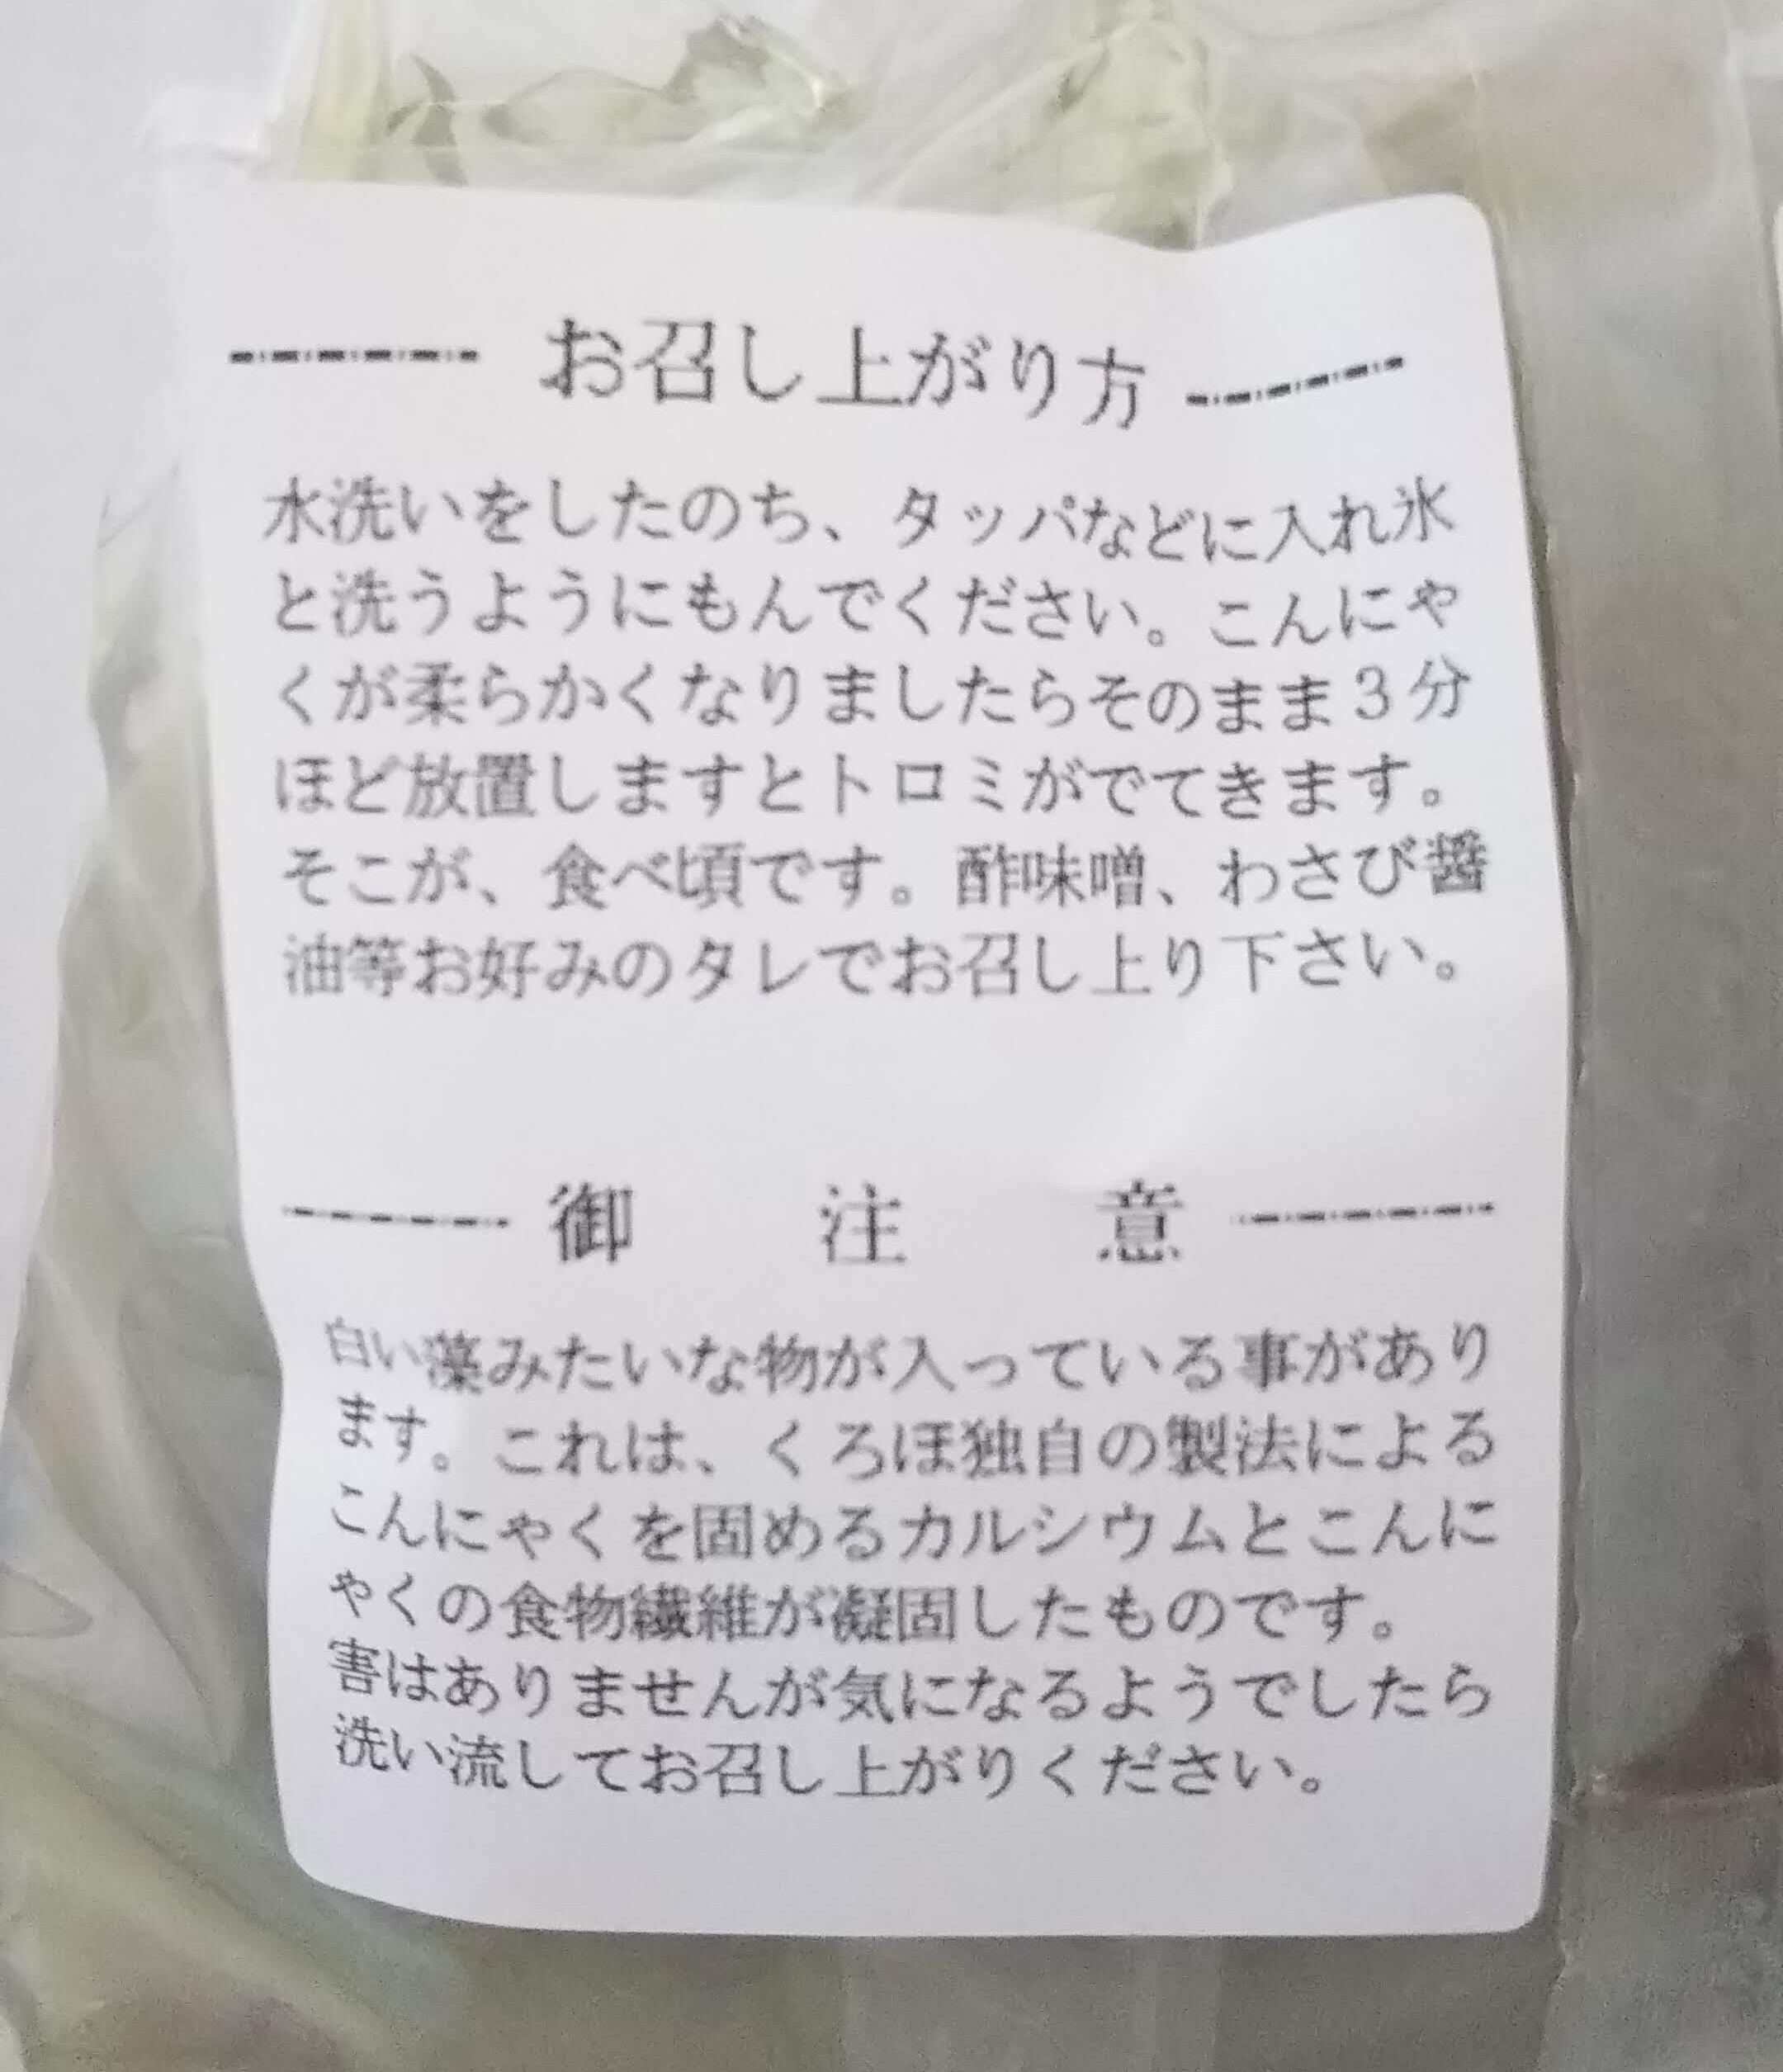 お召し上がり方
水洗いをしたのち、タッパなどに入れ氷
と洗うようにもんでください。こんにゃ
くが柔らかくなりましたらそのまま３分
ほど放置しますとトロミがでてきます。
そこが、食べ頃です。酢味噌、わさび醤
油等お好みのタレでお召し上り下さい。
御　注　意
白い藻みたいな物が入っている事があり
ます。これは、くろほ独自の製法による
こんにゃくを固めるカルシウムとこんに
ゃくの食物繊維が凝固したものです。
害はありませんが気になるようでしたら
洗い流してお召し上がりください。